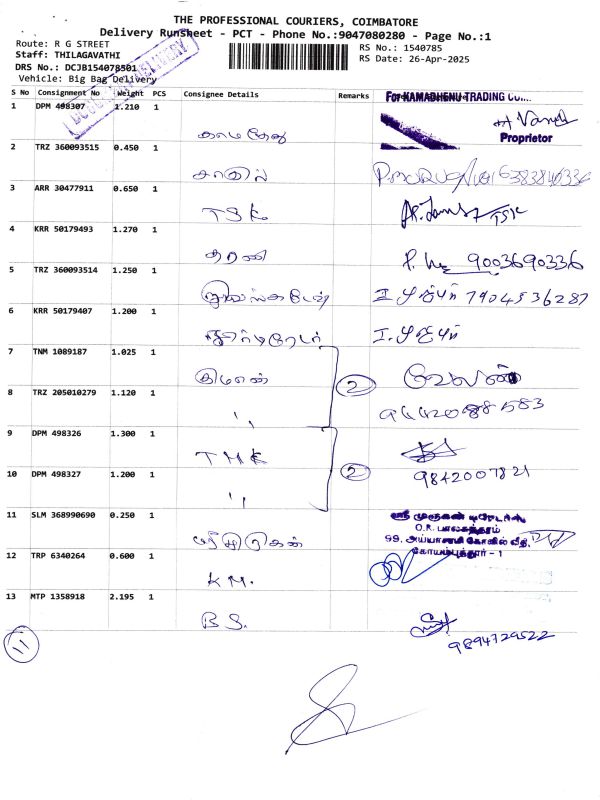 THE PROFESSIONAL COURIERS, COIMBATORE
Delivery Runsheet - PCT - Phone No.:9047080280 - Page No.:1
Route: R G STREET
Staff: THILAGAVATHI
DRS No.: DCJB154078501
Vehicle: Big Bag Delivery
RS No.: 1540785
RS Date: 26-Apr-2025
S No Consignment No Weight PCS Consignee Details Remarks
For KAMADHENU TRADING
1 DPM 498307 1.210 1 காமதேனு
Proprietor
2 TRZ 360093515 0.450 1 6383840336
3 ARR 30477911 0.650 1 TSK TSK
4 KRR 50179493 1.270 1 தரணி 9003690336
5 TRZ 360093514 1.250 1 7904536287
6 KRR 50179407 1.200 1
7 TNM 1089187 1.025 1 2
8 TRZ 205010279 1.120 1 " 9442088583
9 DPM 498326 1.300 1 TMK 2
10 DPM 498327 1.200 1 " 9842007821
11 SLM 368990690 0.250 1
ஸ்ரீ முருகன் டிரேடர்ஸ்
O.K. பாலசுந்தரம்
99, அய்யாசாமி கோவில் வீதி,
கோயம்புத்தூர் - 1
12 TRP 6340264 0.600 1 KM.
13 MTP 1358918 2.195 1 B S. 9894729522
11